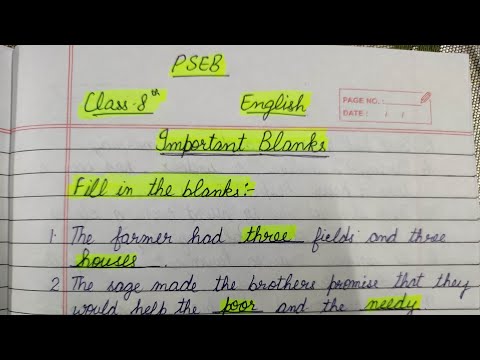 PSEB
Class-8th English
PAGE NO.:
DATE: / /
Important Blanks
Fill in the blanks:-
1. The farmer had three fields and three
houses.
2 The sage made the brothers promise that they
would help the poor and the needy.